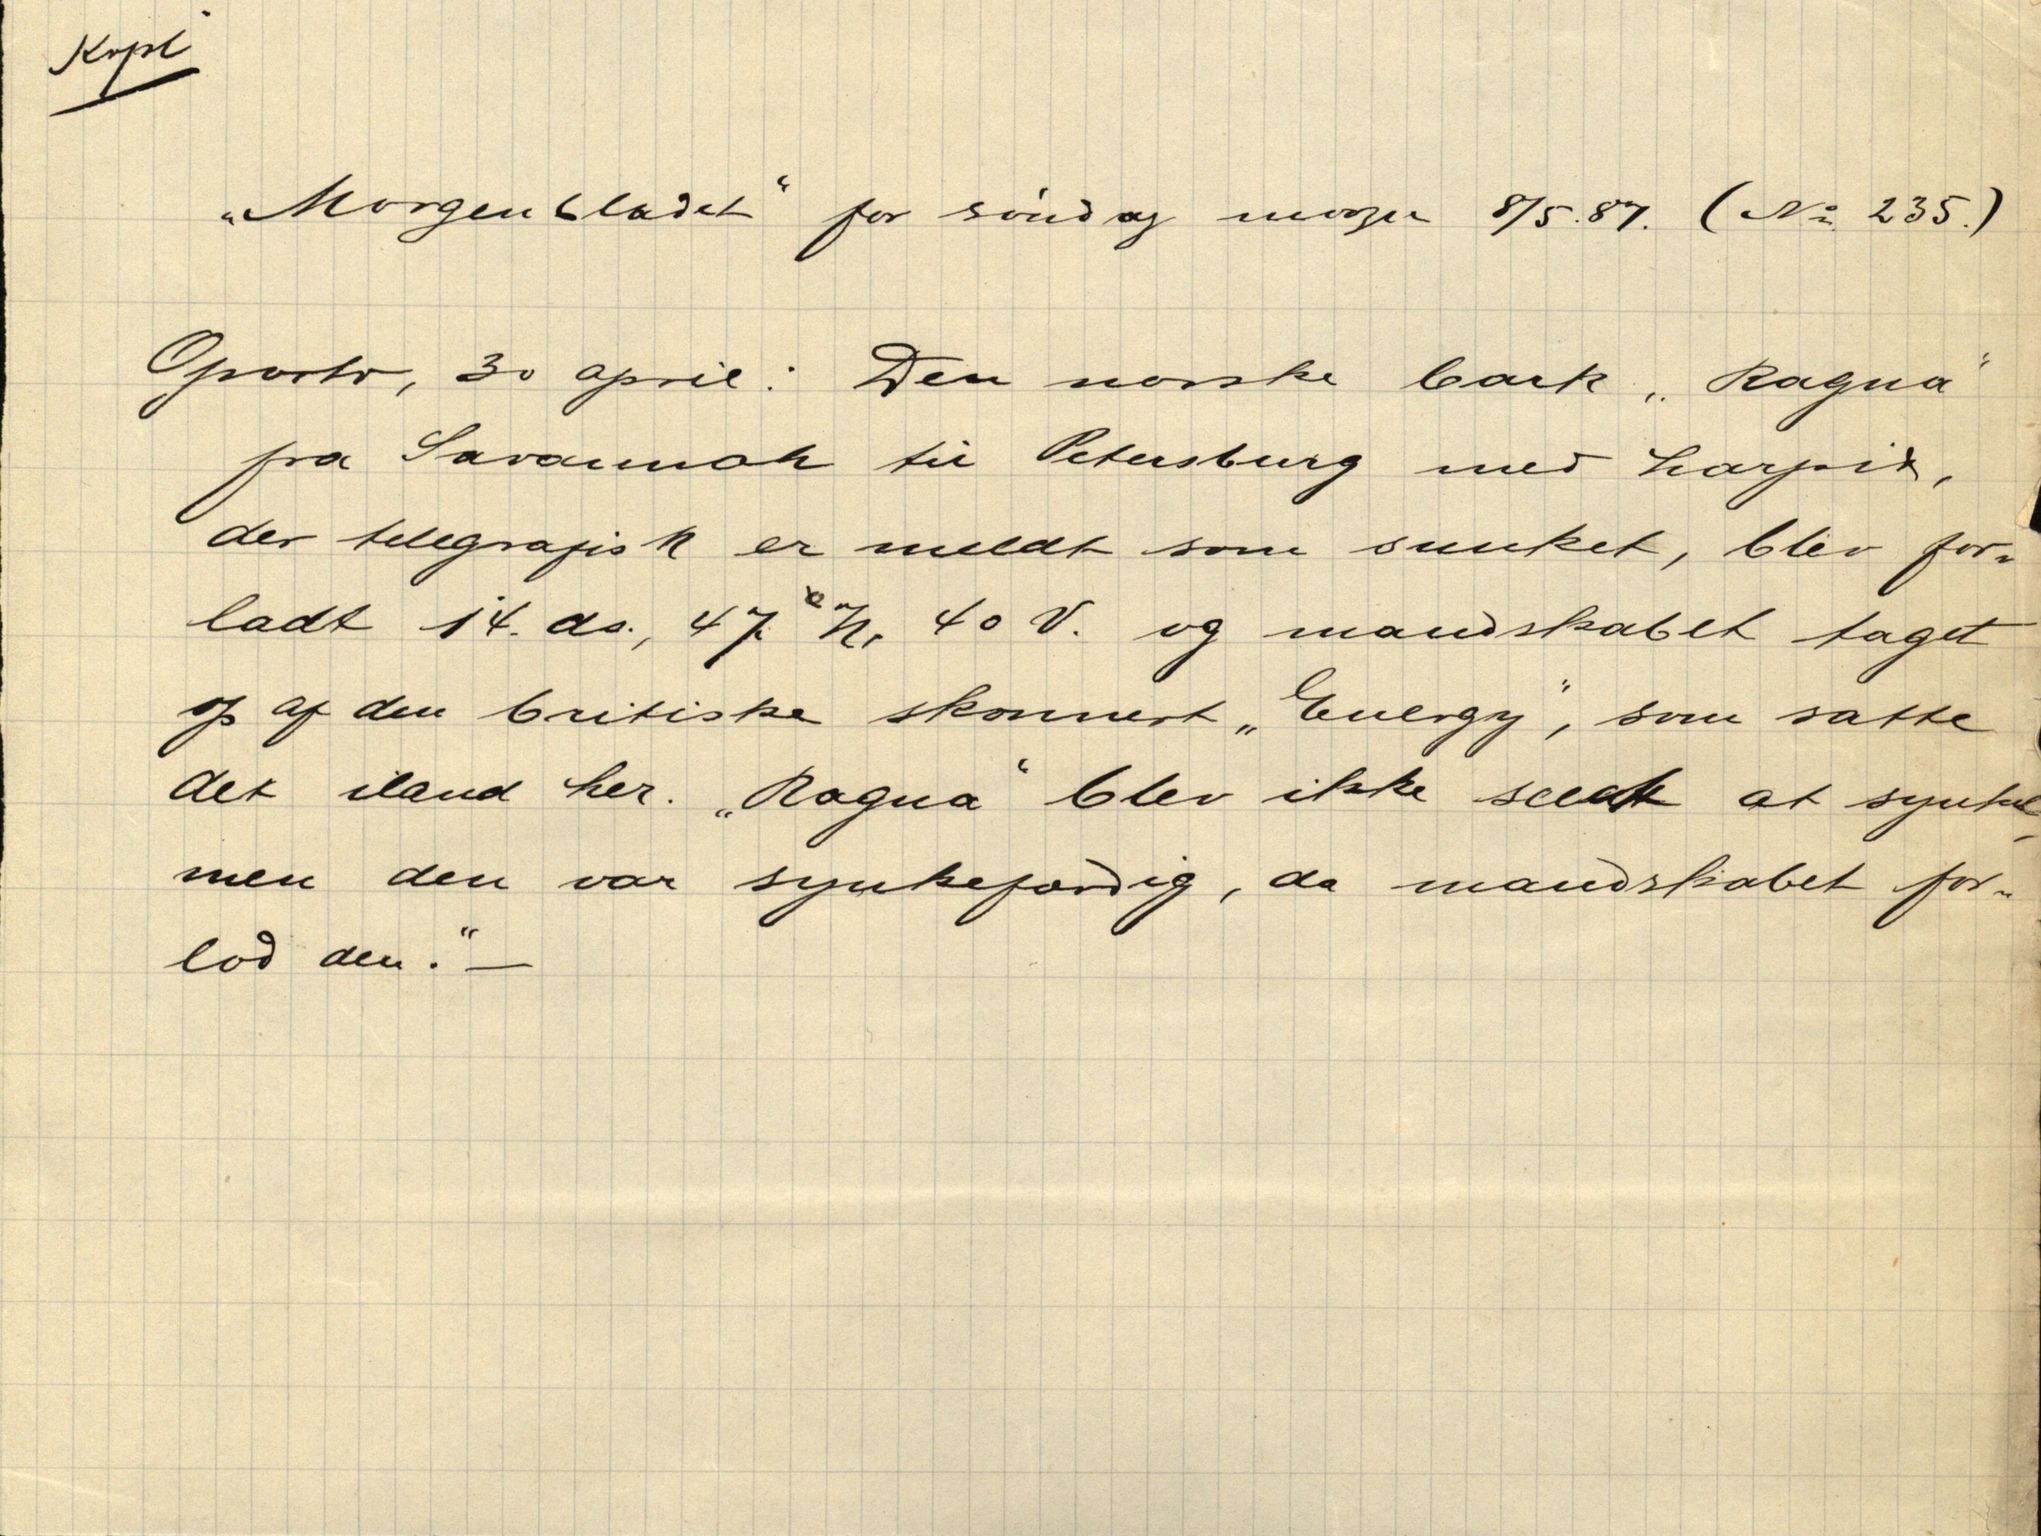 Kopi
„Morgenbladet“ for søndag morgen 8/5.87. (No. 235.)
Oporto, 30 april: Den norske bark „Ragna“
fra Savannah til Petersburg med harpix,
der telegrafisk er meldt som sunket, blev for-
ladt 14. ds., 47° N, 40 V. og mandskabet taget
op af den britiske skonnert „Energy“, som satte
det iland her. „Ragna“ blev ikke seet at synke,
men den var synkefærdig, da mandskabet for-
lod den.“ —